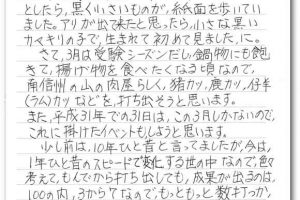 としたら、黒く小さいものが、紙面を歩いてい
ました。アリが出て来たと思ったら、小さな黒い
カマキリの子で、生まれて初めて見ました、に。
さて、3月は受験シーズンだし、鍋物にも飽
きて、揚げ物を食べたくなる頃なので、
南信州の山の肉屋らしく、猪カツ、鹿カツ、仔羊
(ラム)カツなどを打ち出そうと思います。
また、平成31年での31日は、この3月しかないので、
これに掛けたイベントもしようと思います。
少し前は、10年ひと昔と言ってましたが、今は、
1年ひと昔のスピードで変化する世の中なので、色々
考えて、もんでから打ち出しても、成果が出るのは、
100の内、3から7なので、もっともっと数打つか、